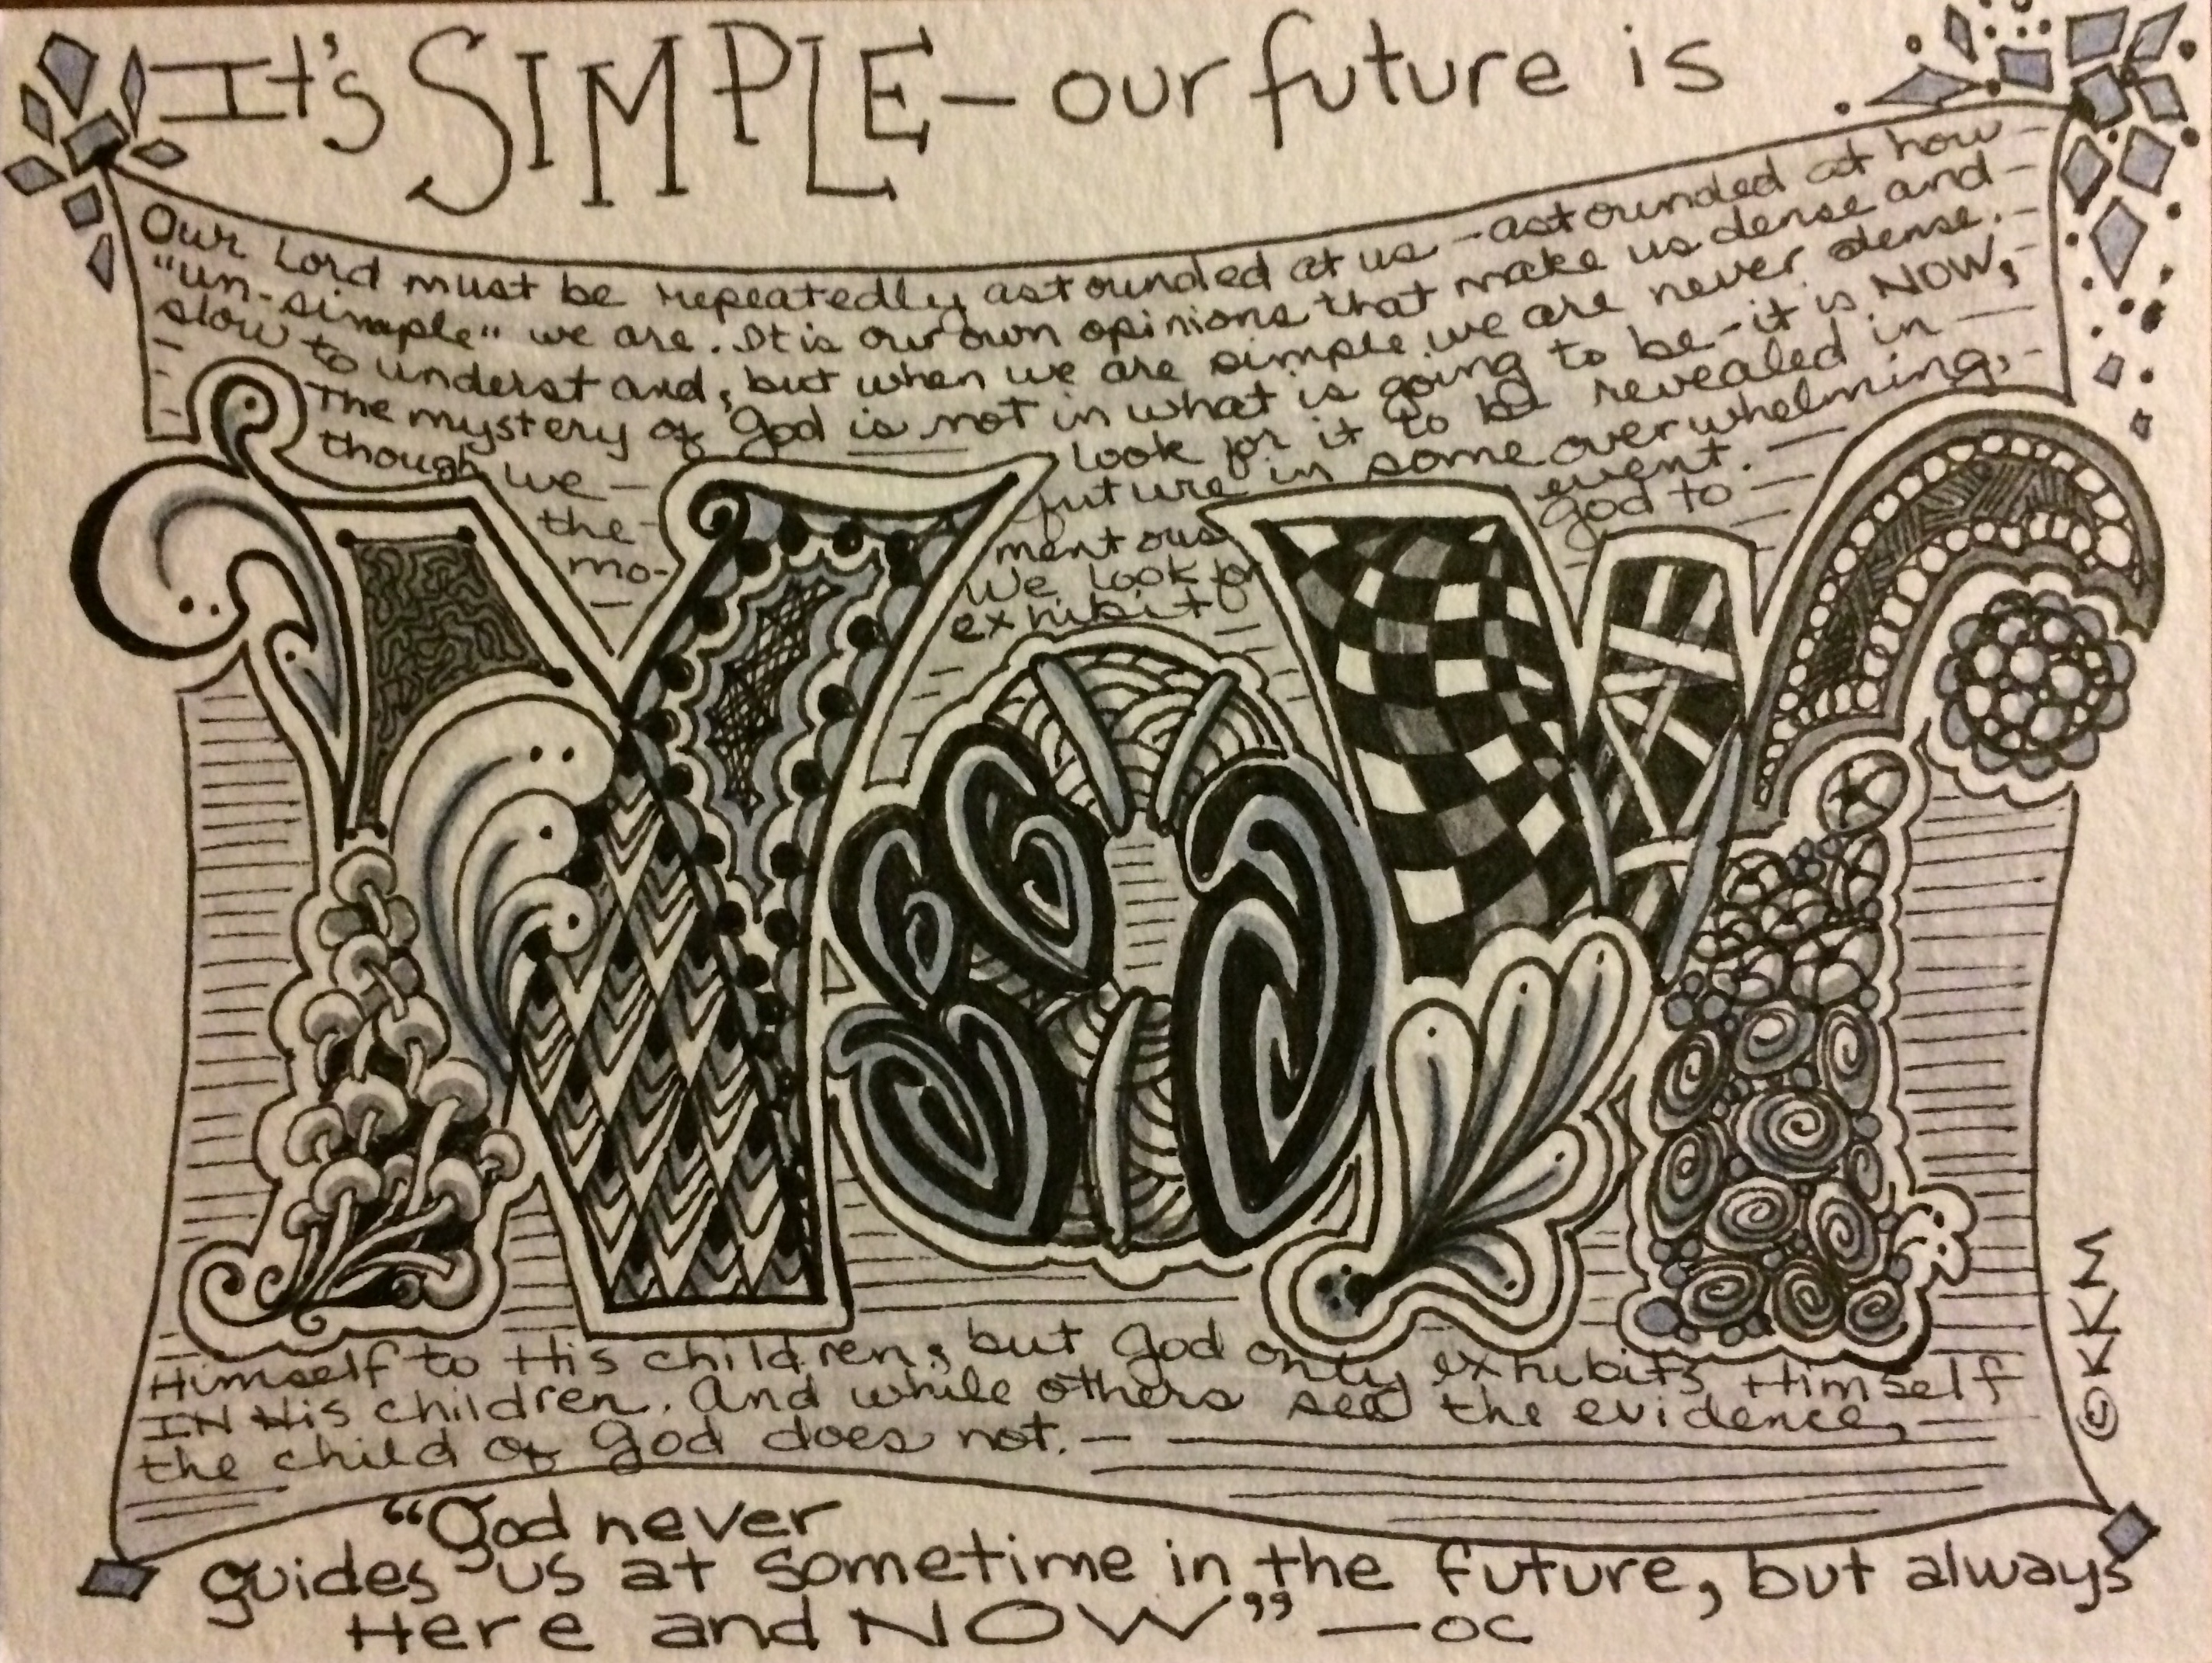 It's SIMPLE — our future is
Our Lord must be repeatedly astounded at us - astounded at how
"un-simple" we are. It is our own opinions that make us dense and
slow to understand, but when we are simple we are never dense.
The mystery of God is not in what is going to be - it is NOW,
though we look for it to be revealed in
the future in some overwhelming,
mo-mentous event.
We look for God to
exhibit
NOW
Himself to His children, but God only exhibits Himself
IN His children. And while others see the evidence,
the child of God does not.
©KKM
"God never
guides us at sometime in the future, but always
Here and NOW" — OC